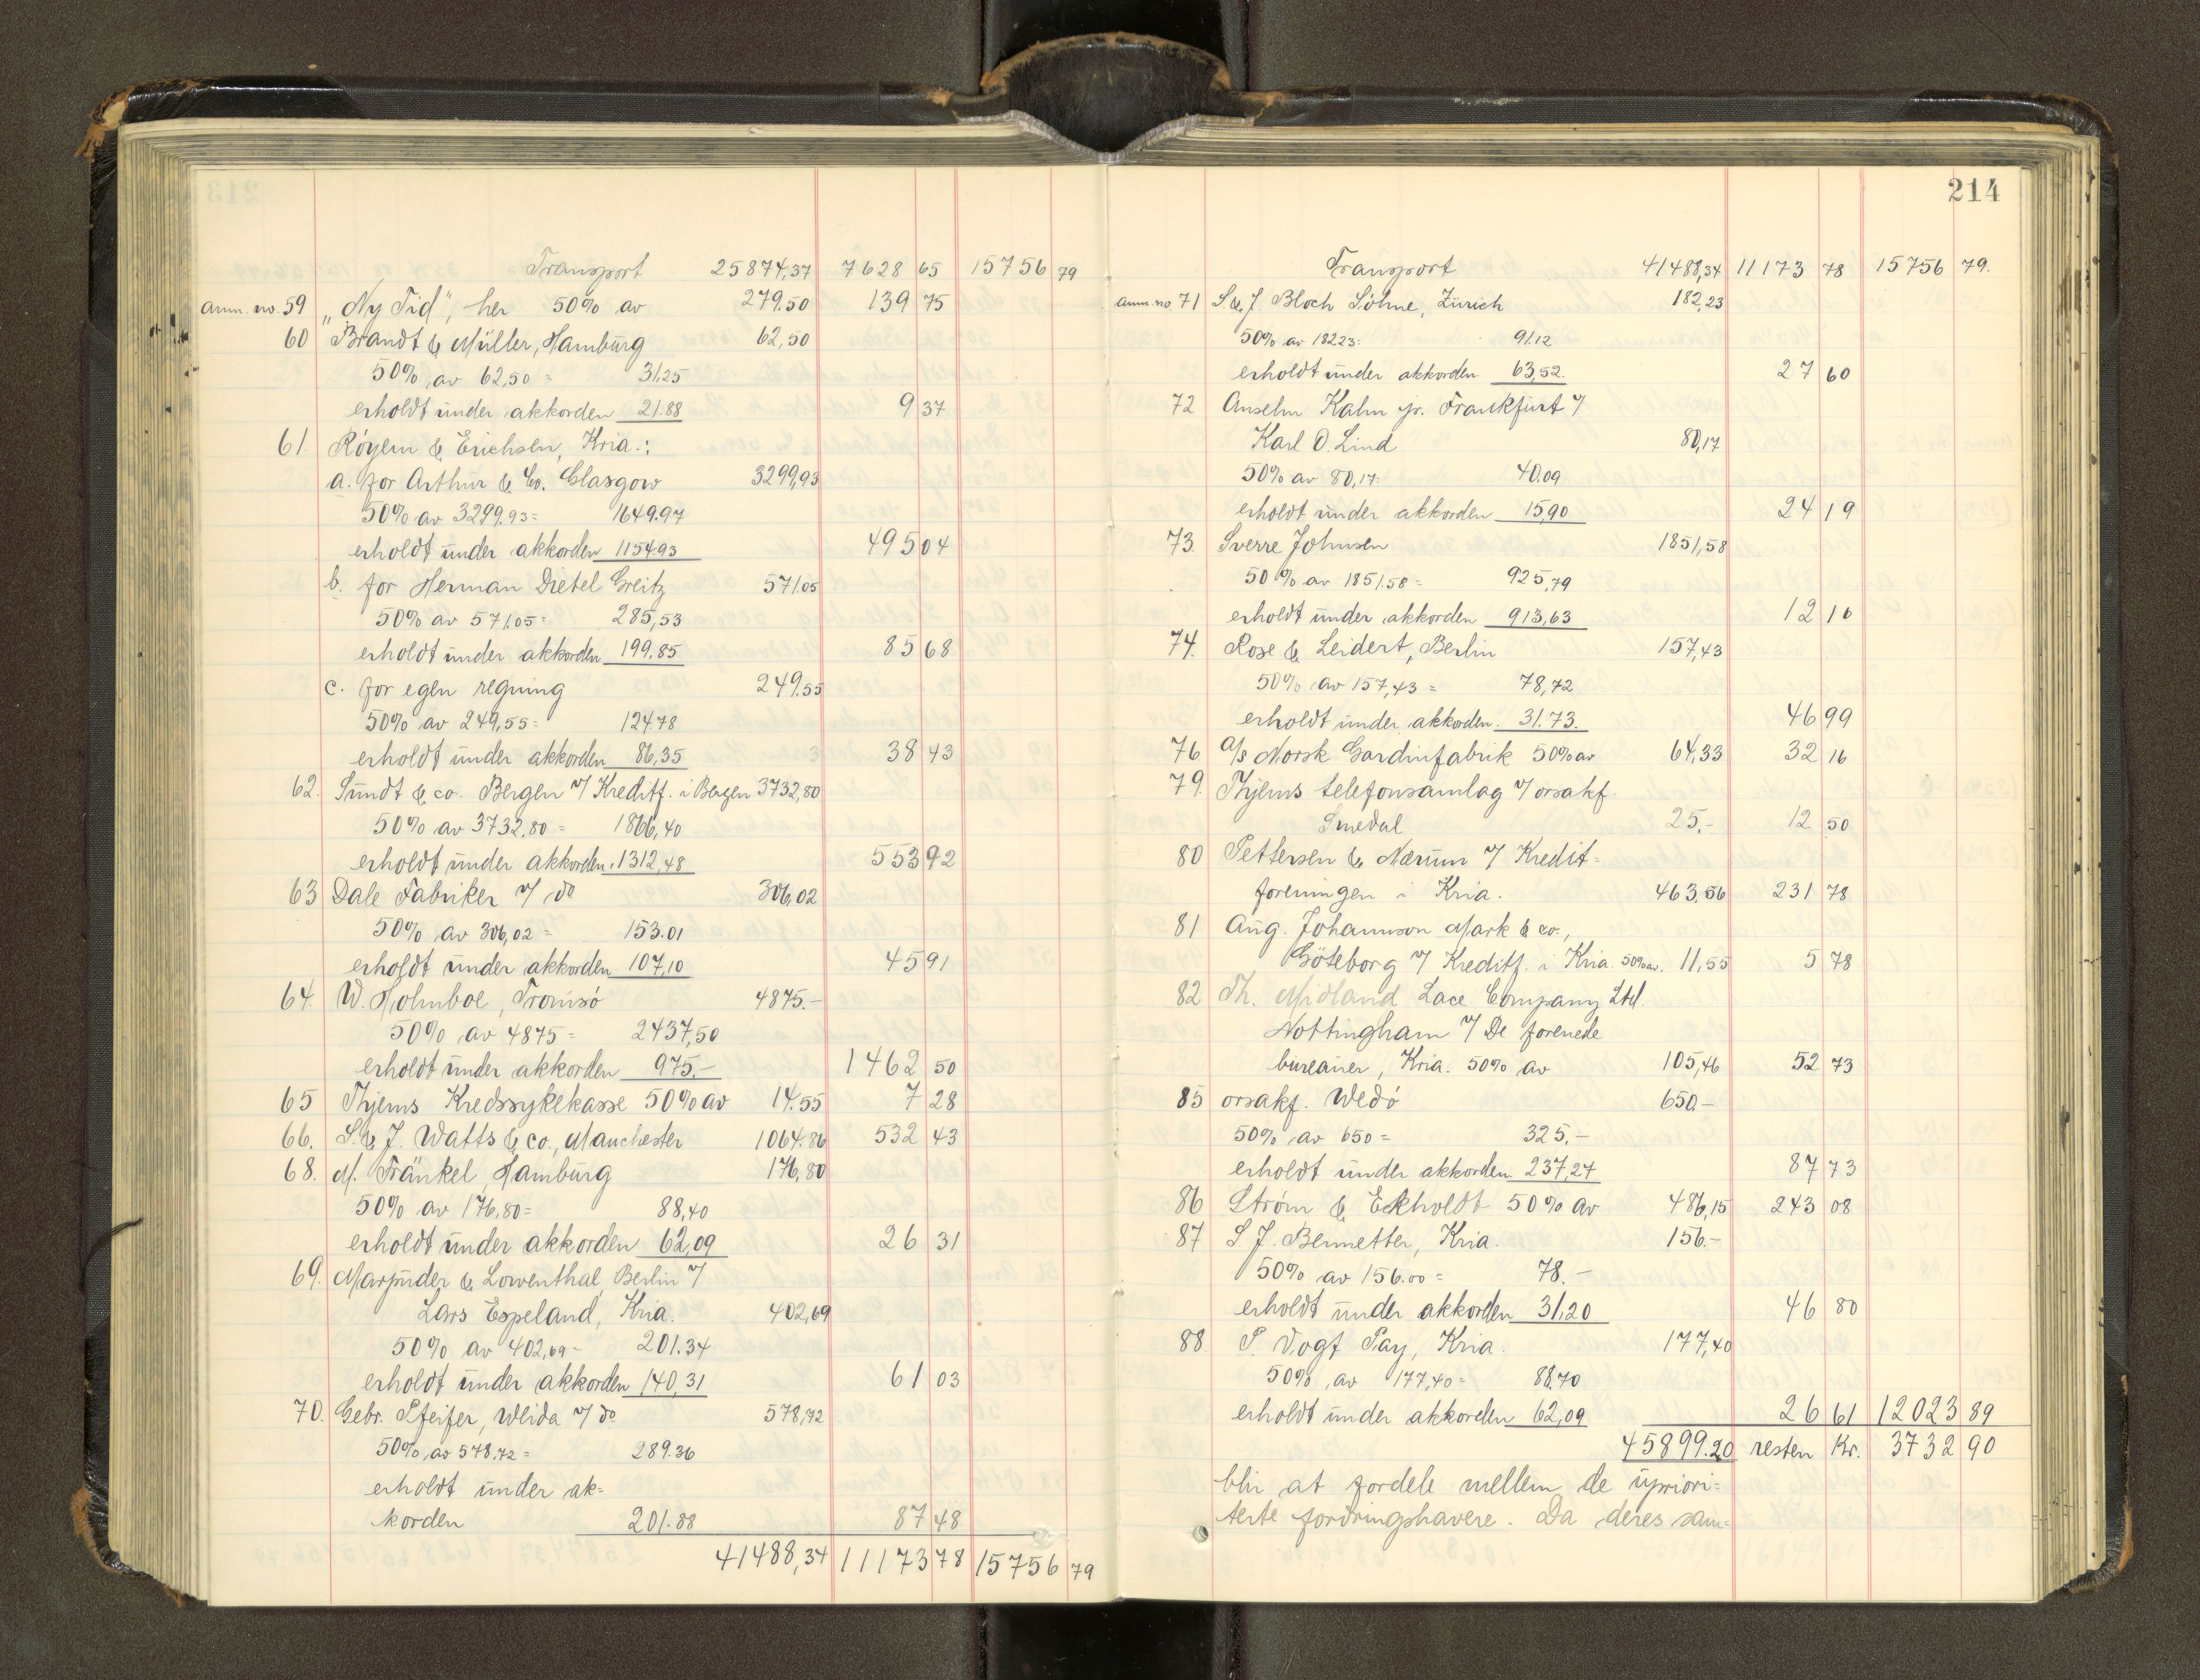 Transport 25874,37 7628 65 15756 79
anm. no. 59 „Ny Tid", her 50% av 279.50 139 75
60 Brandt & Müller, Hamburg 62,50
50% av 62,50 = 31.25
erholdt under akkorden 21.88 9 37
61. Röyem & Erichsen, Kria.:
a. for Arthur & Co. Glasgow 3299,93
50% av 3299.93= 1649.97
erholdt under akkorden 1154.93 495 04
b. for Herman Dietel Greitz 571.05
50% av 571.05= 285,53
erholdt under akkorden 199.85 85 68
c. for egen regning 249.55
50% av 249,55= 124.78
erholdt under akkorden 86,35 38 43
62. Sundt & co. Bergen v/ Kreditf. i Bergen 3732,80
50% av 3732,80= 1866,40
erholdt under akkorden. 1312,48 553 92
63 Dale Fabriker v/ do 306,02
50% av 306,02= 153.01
erholdt under akkorden 107,10 45 91
64. W. Holmboe, Tromsö 4875.-
50% av 4875= 2437,50
erholdt under akkorden 975.- 1462 50
65 Thjems Kredssykekasse 50% av 14.55 7 28
66. S. & J. Watts & co., Manchester 1064.86 532 43
68. M. Fränkel, Hamburg 176,80
50% av 176.80= 88,40
erholdt under akkorden 62,09 26 31
69. Marjuder & Lowenthal, Berlin v/
Lars Espeland, Kria. 402,69
50% av 402,69= 201.34
erholdt under akkorden 140,31 61 03
70. Gebr. Pfeifer, Weida v/ do 578,72
50% av 578.72= 289.36
erholdt under ak=
korden 201.88 87 48
41488,34 11173 78 15756 79
214
Transport 41488,34 11173 78 15756 79.
anm. no. 71 S. & J. Bloch Söhne, Zürich 182,23
50% av 182.23: 91.12
erholdt under akkorden 63,52. 27 60
72 Anselm Kahn jr. Frankfurt v/
Karl O. Lind 80,17
50% av 80,17: 40.09
erholdt under akkorden 15,90 24 19
73. Sverre Johnsen 1851,58
50% av 1851.58= 925,79
erholdt under akkorden 913,63 12 16
74. Rose & Leidert, Berlin 157,43
50% av 157,43= 78,72
erholdt under akkorden. 31.73. 46 99
76 A/s Norsk Gardinfabrik 50% av 64,33 32 16
79. Thjems telefonsamlag v/ orsakf.
Smedal 25.- 12 50
80 Pettersen & Nærum v/ Kredit=
foreningen i Kria. 463,56 231 78
81 Aug. Johannson Mark & co.,
Göteborg v/ Kreditf. i Kria. 50% av. 11,55 5 78
82 Th. Midland Lace Company Ltd.
Nottingham v/ De forenede
bureauer, Kria. 50% av 105,46 52 73
85 orsakf. Wedö 650.-
50% av 650= 325.-
erholdt under akkorden. 237,27 87 73
86 Ström & Eckholdt 50% av 486,15 243 08
87 S. J. Bennetter, Kria. 156.-
50% av 156.00= 78.-
erholdt under akkorden 31,20 46 80
88. P. Vogt Pay, Kria. 177,40
50% av 177,40= 88.70
erholdt under akkorden 62,09 26 61 12023 89
45899.20 resten Kr. 3732 90
blir at fordele mellem de upriori=
terte fordringshavere. Da deres sam=